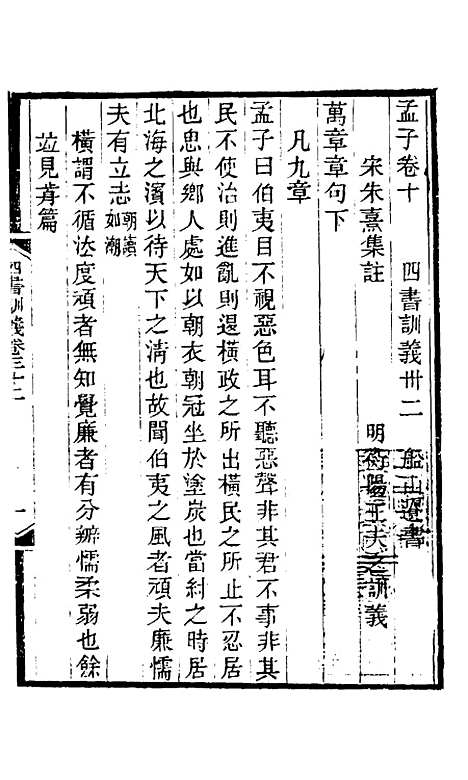 孟子卷十　四書訓義卅二　船山遺書
宋朱熹集註　明衡陽王夫之訓義
萬章章句下
凡九章
孟子曰伯夷目不視惡色耳不聽惡聲非其君不事非其
民不使治則進亂則退橫政之所出橫民之所止不忍居
也思與鄉人處如以朝衣朝冠坐於塗炭也當紂之時居
北海之濱以待天下之清也故聞伯夷之風者頑夫廉懦
夫有立志朝讀如潮
橫謂不循法度頑者無知覺廉者有分辨懦柔弱也餘
竝見前篇
四書訓義卷三十二　一